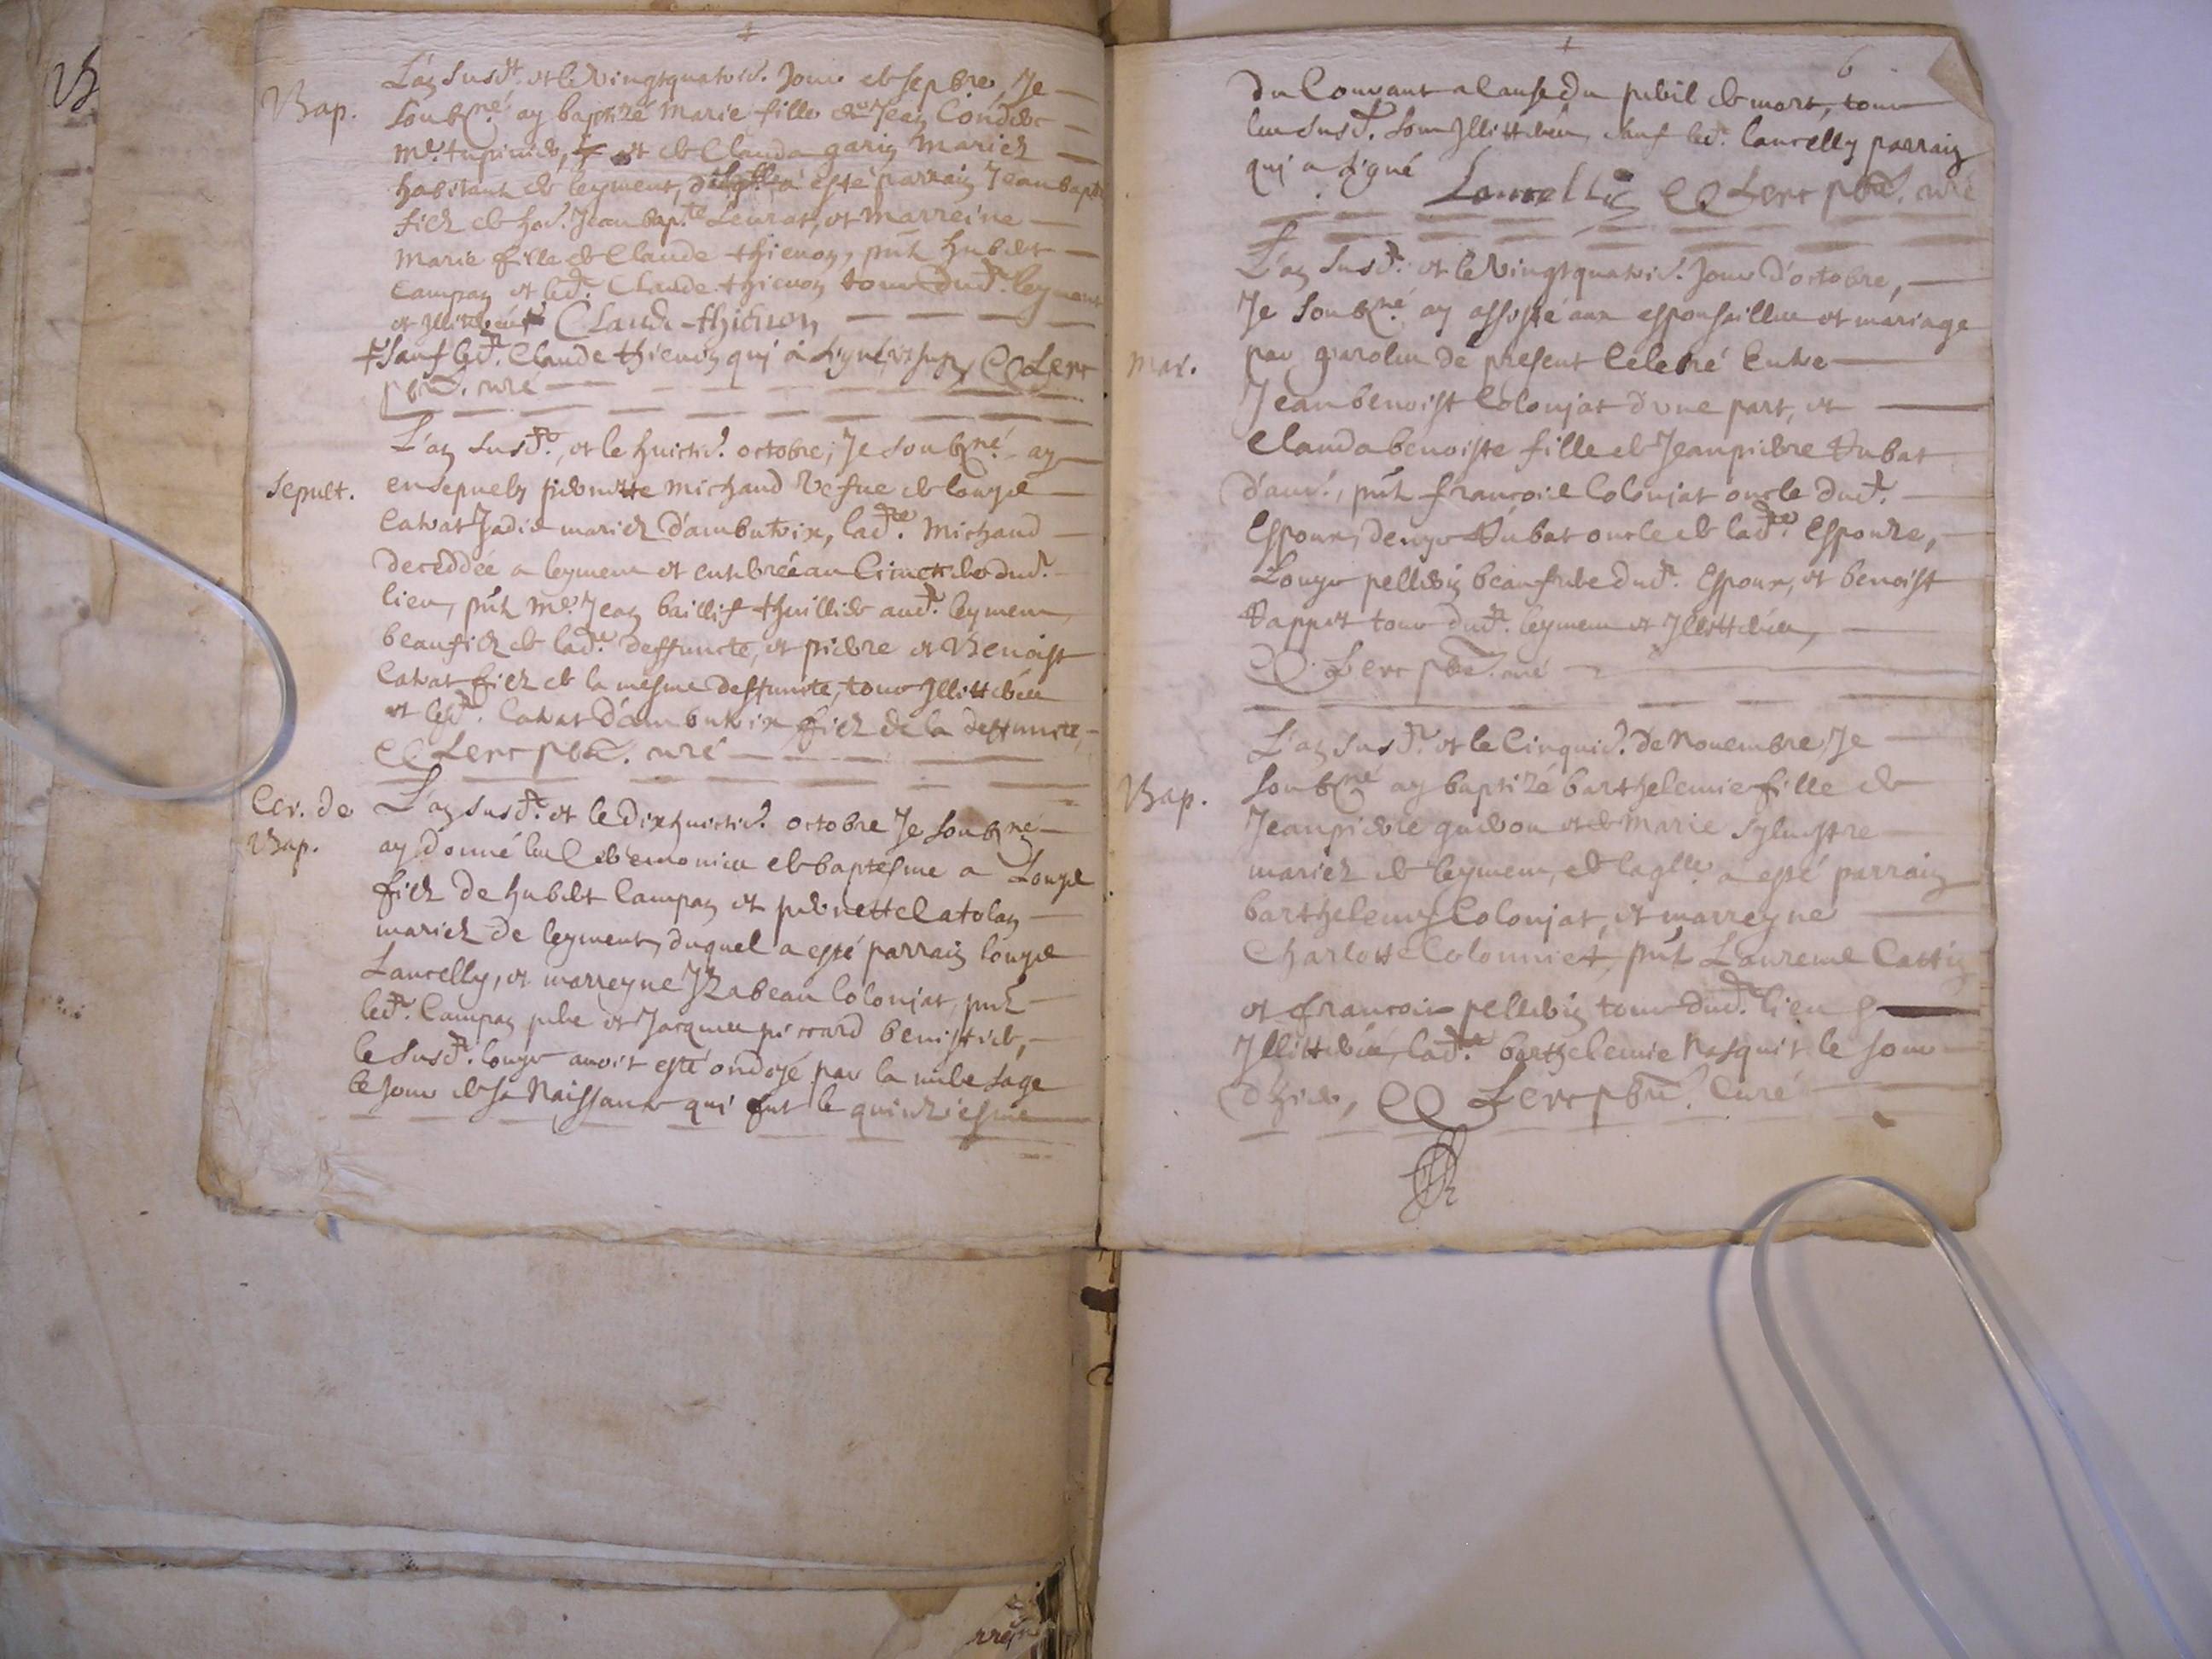 Bap.
L'an susd.t et le vingtquatries. Jour de sepbre, Je
soubz.né ay baptizé Marie fille de Jean Condder
M.e tupinier, et de Clauda garin mariez
habitant de leyment, a esté parrain Jean bapt
filz de ho.e Jean bap.te Leurat, et marreine
Marie fille de Claude thienon, pnt hubert
Campan et led.t Claude thienon tous dud.t leyment
et illitérés Claude thienon
+ sauf led.t Claude thienon qui a signé Clerc
pbre. curé
sepult.
L'an susd.t, et le huictie. octobre, Je soubz.né ay
ensepuely pernette Michaud vefue de louys
Catrat Jadis mariez d'ambutrix, lad.te Michaud
deceddée a leyment et enterrée au Cimetiere dud.t
lieu, pnt M.e Jean baillif thuillier aud.t leyment
beaufilz de lad.te deffuncte, et pierre et Benoist
Catrat filz de la mesme deffuncte, tous Illitteres
et lesd.t Catrat d'ambutrix filz de la deffuncte,
Clerc pbre. curé
Cer. de
Bap.
L'an susd.t et le dixhuictie. octobre Je soubz.né
ay donné les Ceremonies de baptesme a Louys
filz de hubert Campan et pernette latolan
mariez de leyment, duquel a esté parrain louys
Lancelly, et marreyne Izabeau Colonjat, pnt
led.t Campan pere et Jacques piccard benistier,
le susd.t louys auoit esté ondoyé par la mere sage
le Jour de sa Naissance qui fut le quinziesme
6
Du Courant a cause du peril de mort, tous
les susd.t sont Illitteres, sauf led.t lancelly parrain
qui a signé Lancelly Clerc pbre. curé
mar.
L'an susd.t et le vingtquatrie. Jour d'octobre,
Je soubz.né ay assisté aux espousailles et mariage
par parolles de present Celebré Entre
Jean benoist Colonjat d'une part, et
Clauda benoiste fille de Jeanpierre Tubat
d'autre, pnt françois Colonjat oncle dud.t
Espoux, denys Tubat oncle de lad.te Espouze,
Louys pellerin beaufrere dud.t Espoux, et benoist
Tappet tous dud.t leyment et Illitteres,
Clerc pbre. curé
Bap.
L'an susd.t et le Cinquie. de Nouembre Je
soubz.né ay baptizé barthelemie fille de
Jeanpierre guerou et de Marie Syluestre
mariez de leyment, de laqlle a esté parrain
barthelemy Colonjat, et marreyne
Charlotte Colonniet, pnt Laurens Cattin
et francois pellerin tous dud.t lieu
Illitteres, lad.te barthelemie Nasquit le Jour
d'hier, Clerc pbre. Curé